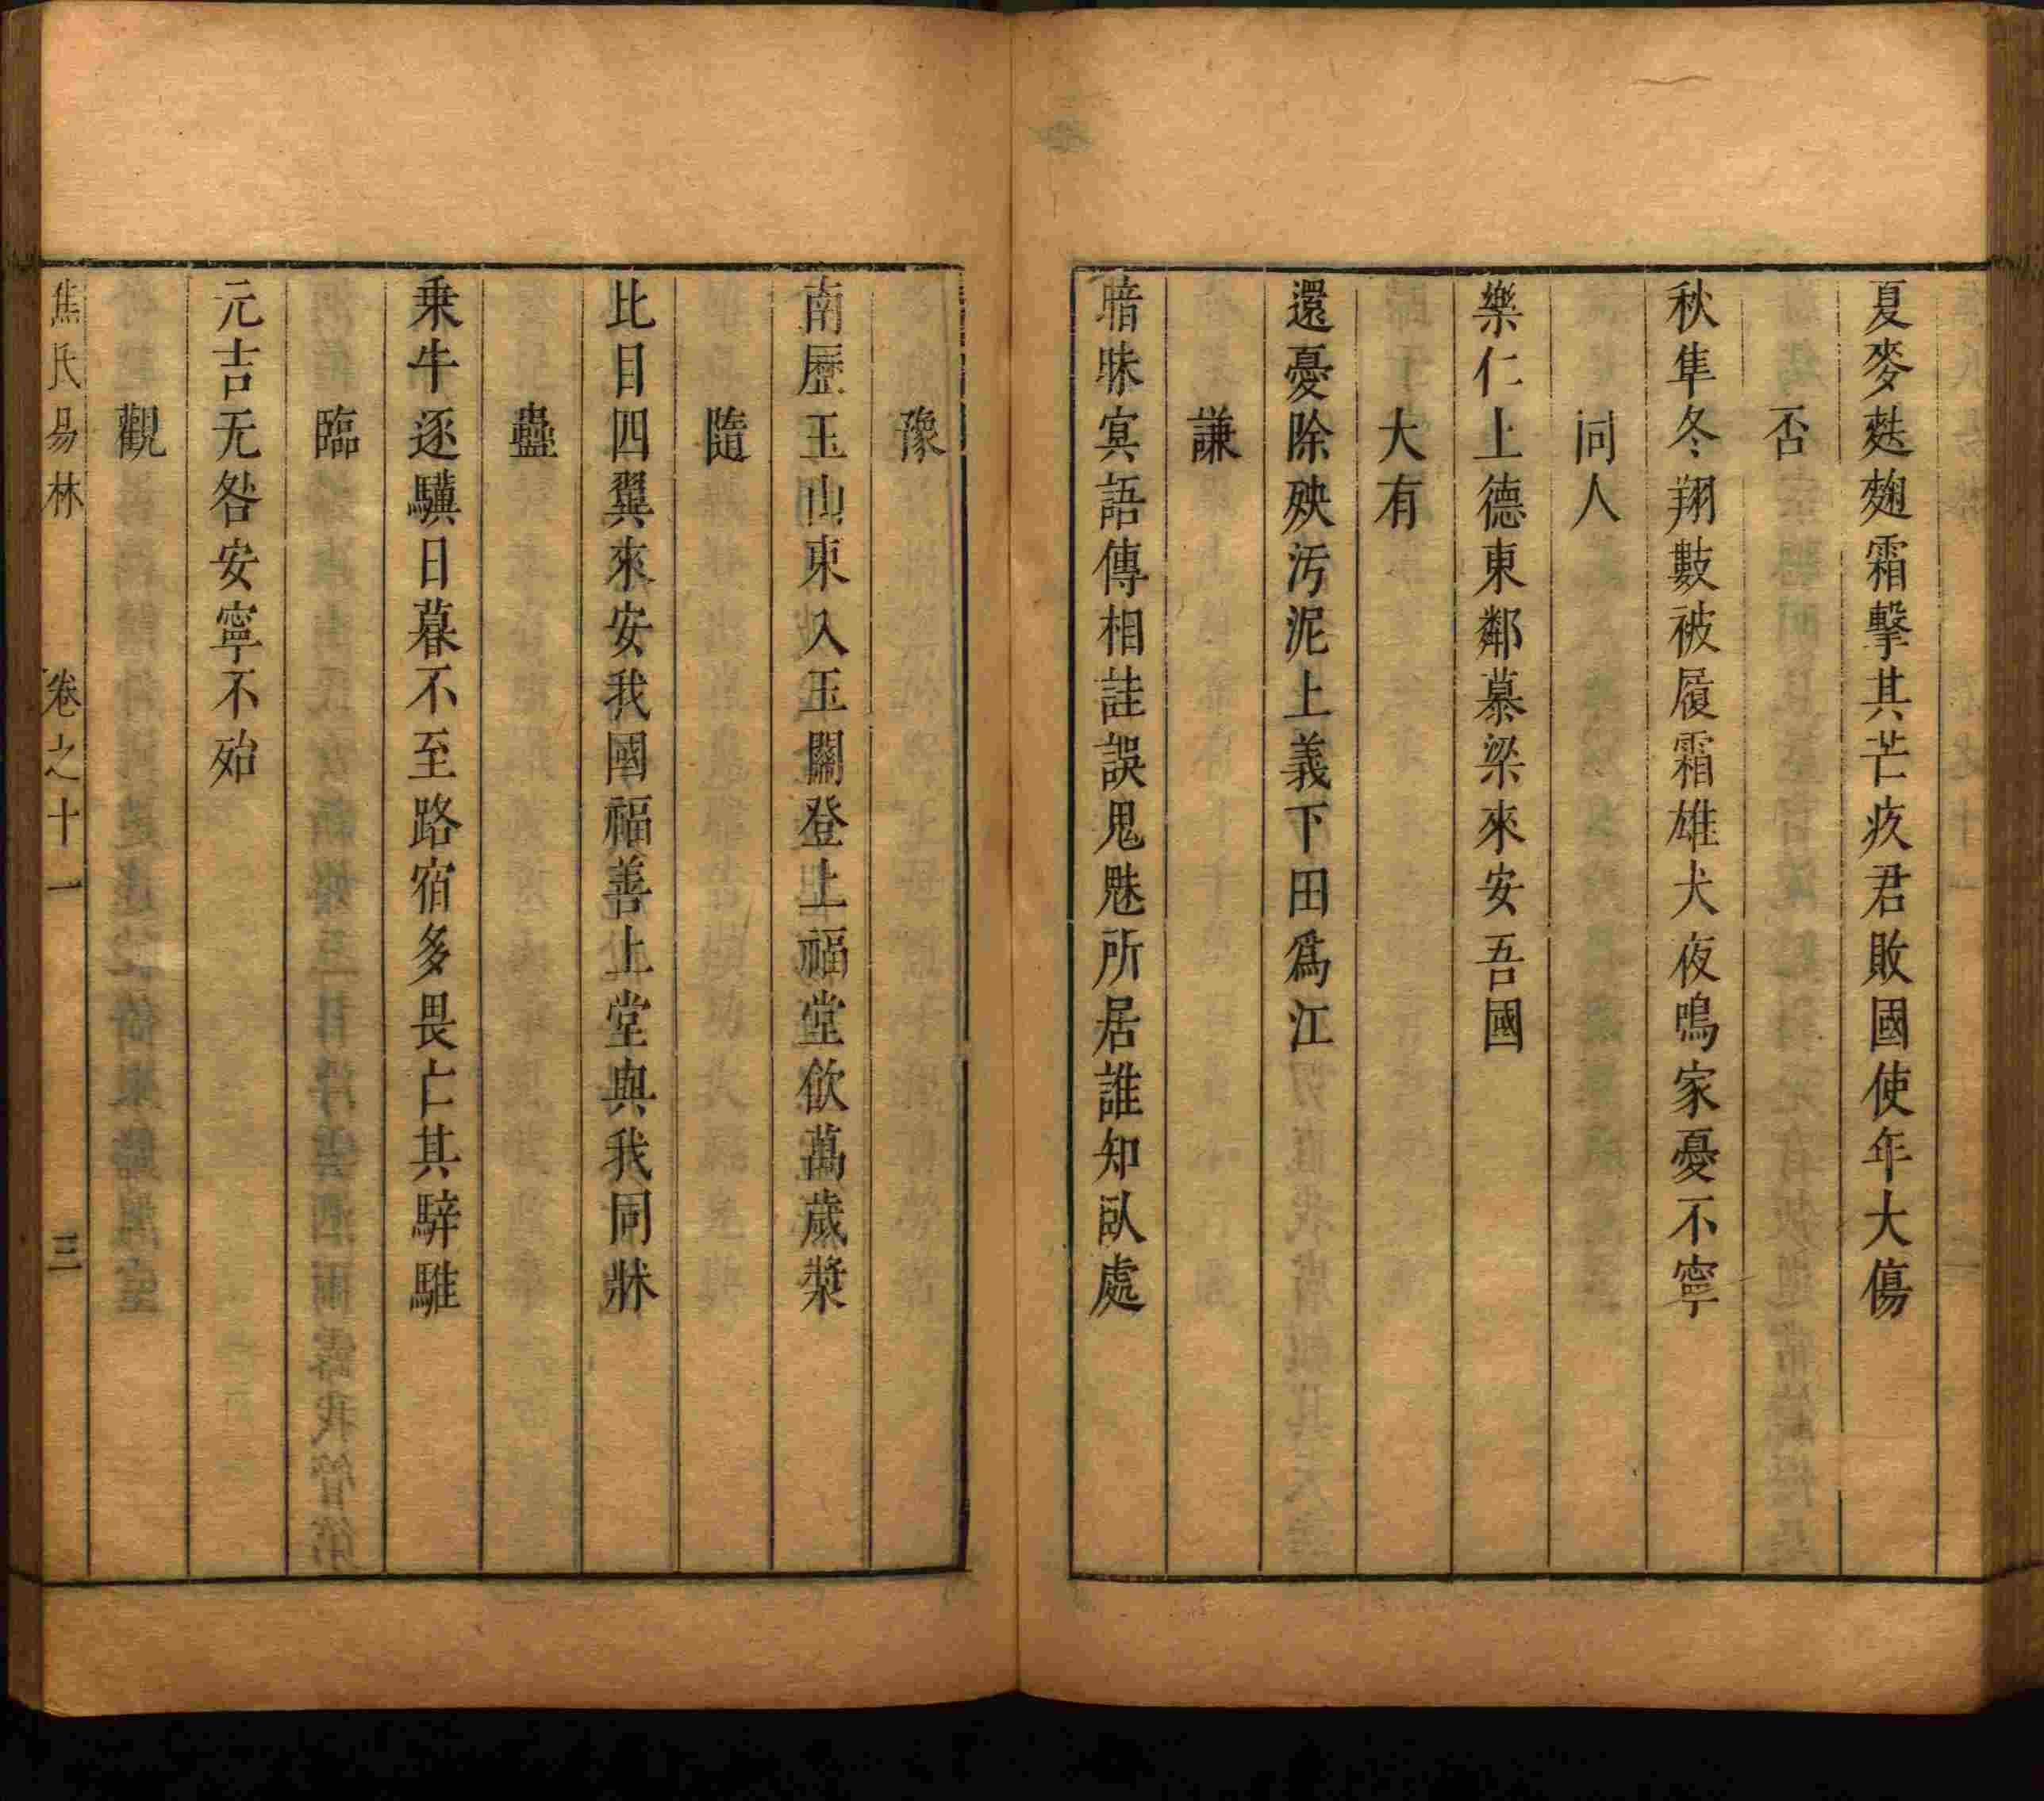 夏麥䴬麹霜擊其芒疚君敗國使年大傷
否
秋隼冬翔數被履霜雄犬夜鳴家憂不寧
同人
樂仁上德東鄰慕梁來安吾國
大有
還憂除殃汚泥上義下田爲江
謙
暗昧寞語傳相詿誤鬼魅所居誰知臥處
豫
南歷玉山東入玉關登上福堂飲萬歲漿
隨
比目四翼來安我國福善上堂與我同牀
蠱
乗牛逐驥日暮不至路宿多畏亡其騂騅
臨
元吉无咎安寧不殆
觀
焦氏易林 卷之十一 三